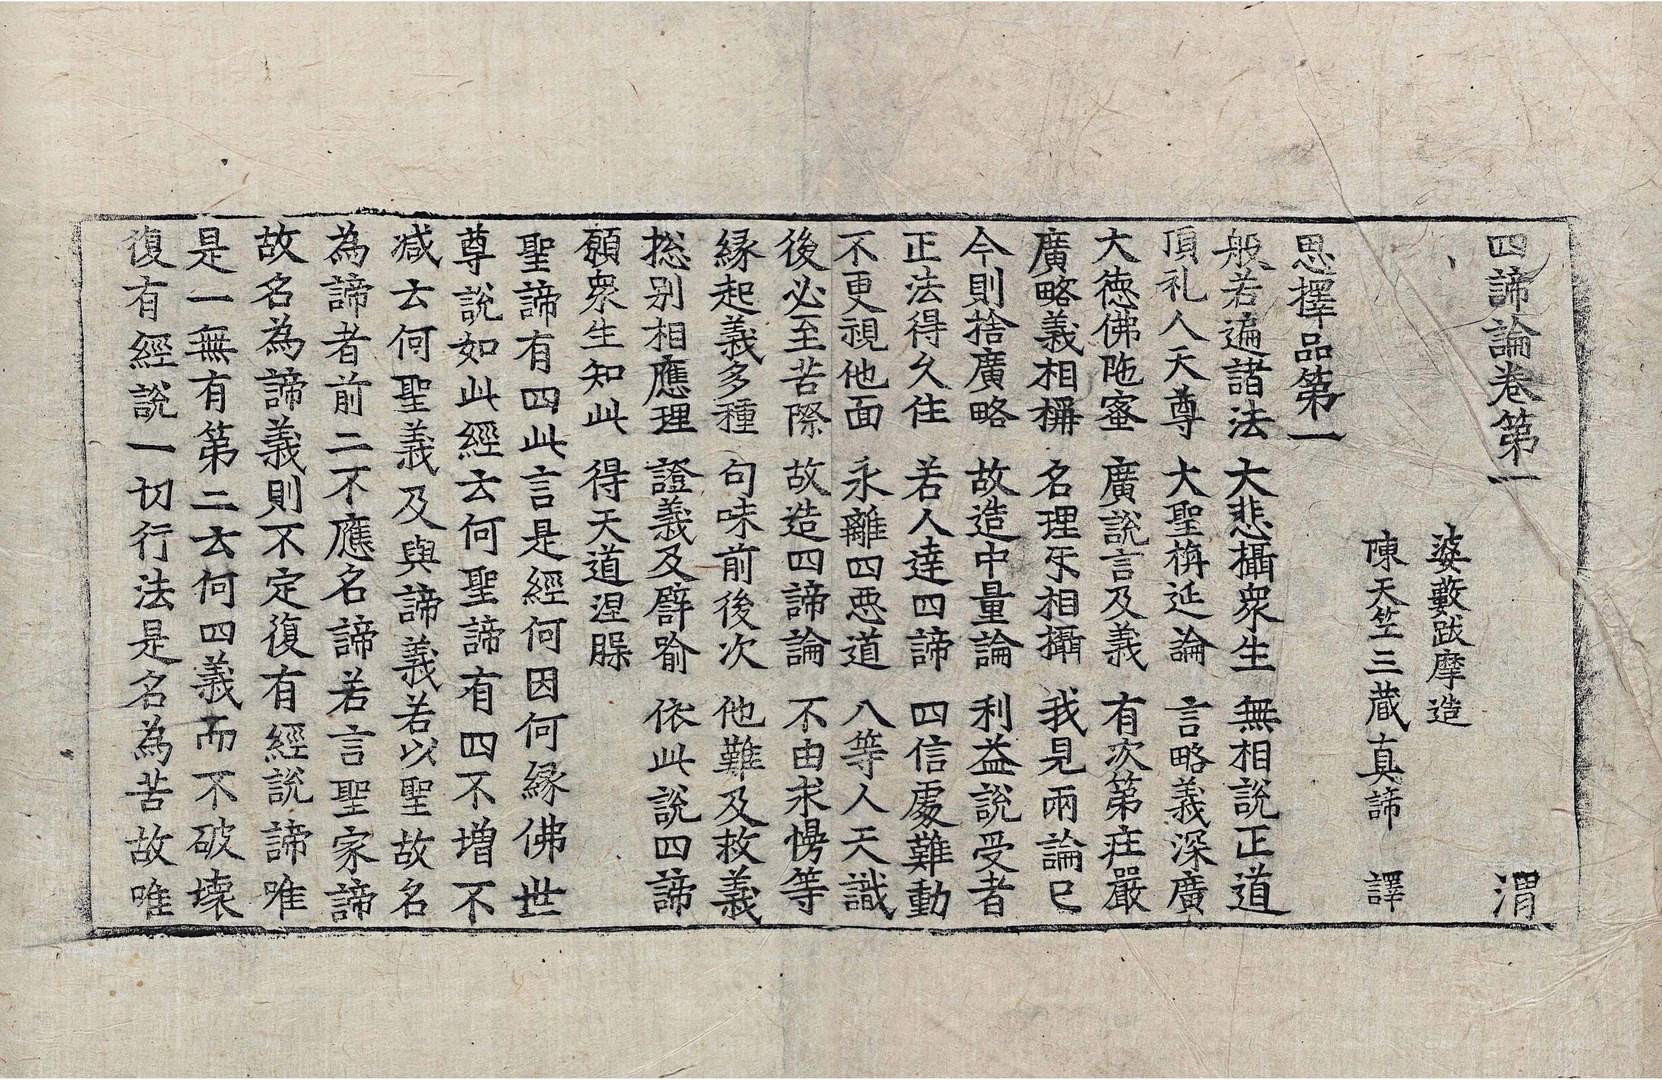 四諦論卷第一 渭
婆藪跋摩造
陳天竺三藏真諦 譯
思擇品第一
般若遍諸法 大悲攝衆生 無相說正道
頂礼人天尊 大聖栴延論 言略義深廣
大徳佛陁蜜 廣說言及義 有次第莊嚴
廣略義相稱 名理㸦相攝 我見兩論已
今則捨廣略 故造中量論 利益說受者
正法得久住 若人達四諦 四信處難動
不更視他面 永離四惡道 八等人天識
後必至苦際 故造四諦論 不由求愣等
緣起義多種 句味前後次 他難及救義
揔别相應理 證義及譬喻 依此說四諦
願衆生知此 得天道涅槃
聖諦有四此言是經何因何緣佛世
尊說如此經云何聖諦有四不增不
减云何聖義及與諦義若以聖故名
為諦者前二不應名諦若言聖家諦
故名為諦義則不定復有經說諦唯
是一無有第二云何四義而不破壞
復有經說一切行法是名為苦故唯